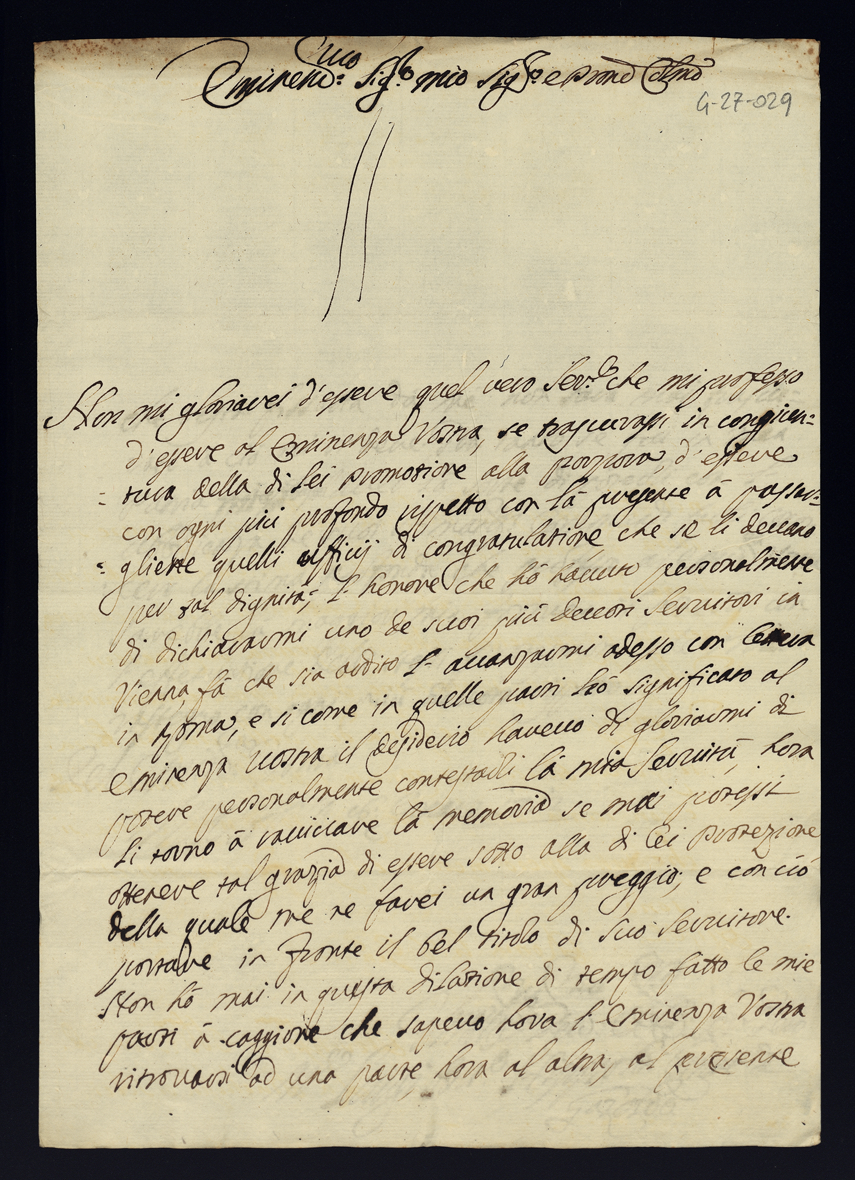 Eminen.mo Sig.re mio Sig.re e Pron Colmo
G-27-029
Non mi gloriarei d'essere quel vero Ser.re che mi professo
d'essere al Eminenza Vostra, se trascurassi in congiun=
=tura della di Lei promotione alla porpora, d'essere
con ogni più profondo rispetto con là presente à passar=
=glieste quelli ufficij di congratulatione che se li devano
per tal dignità; l'honore che hò hàvuto personalmente
di dichiararmi uno de suoi più devoti Servitori in
Vienna, fà che sia ardito l'avanzarmi adesso con lettera
in Roma, e si come in quelle parti hò significato al
Eminenza Vostra il desiderio havevo di gloriarmi di
potere personalmente contestarli là mia Servitù, hora
li torno à ravvivare là memoria se mai potessi
ottenere tal grazia di essere sotto alla di Lei protezione
della quale me ne farei un gran preggio; e con ciò
portare in fronte il bel titolo di Suo Servitore.
Non hò mai in questa dilatione di tempo fatto le mie
parti à caggione che sapevo hora l'Eminenza Vostra
ritrovarsi ad una parte, hora al altra, al presente